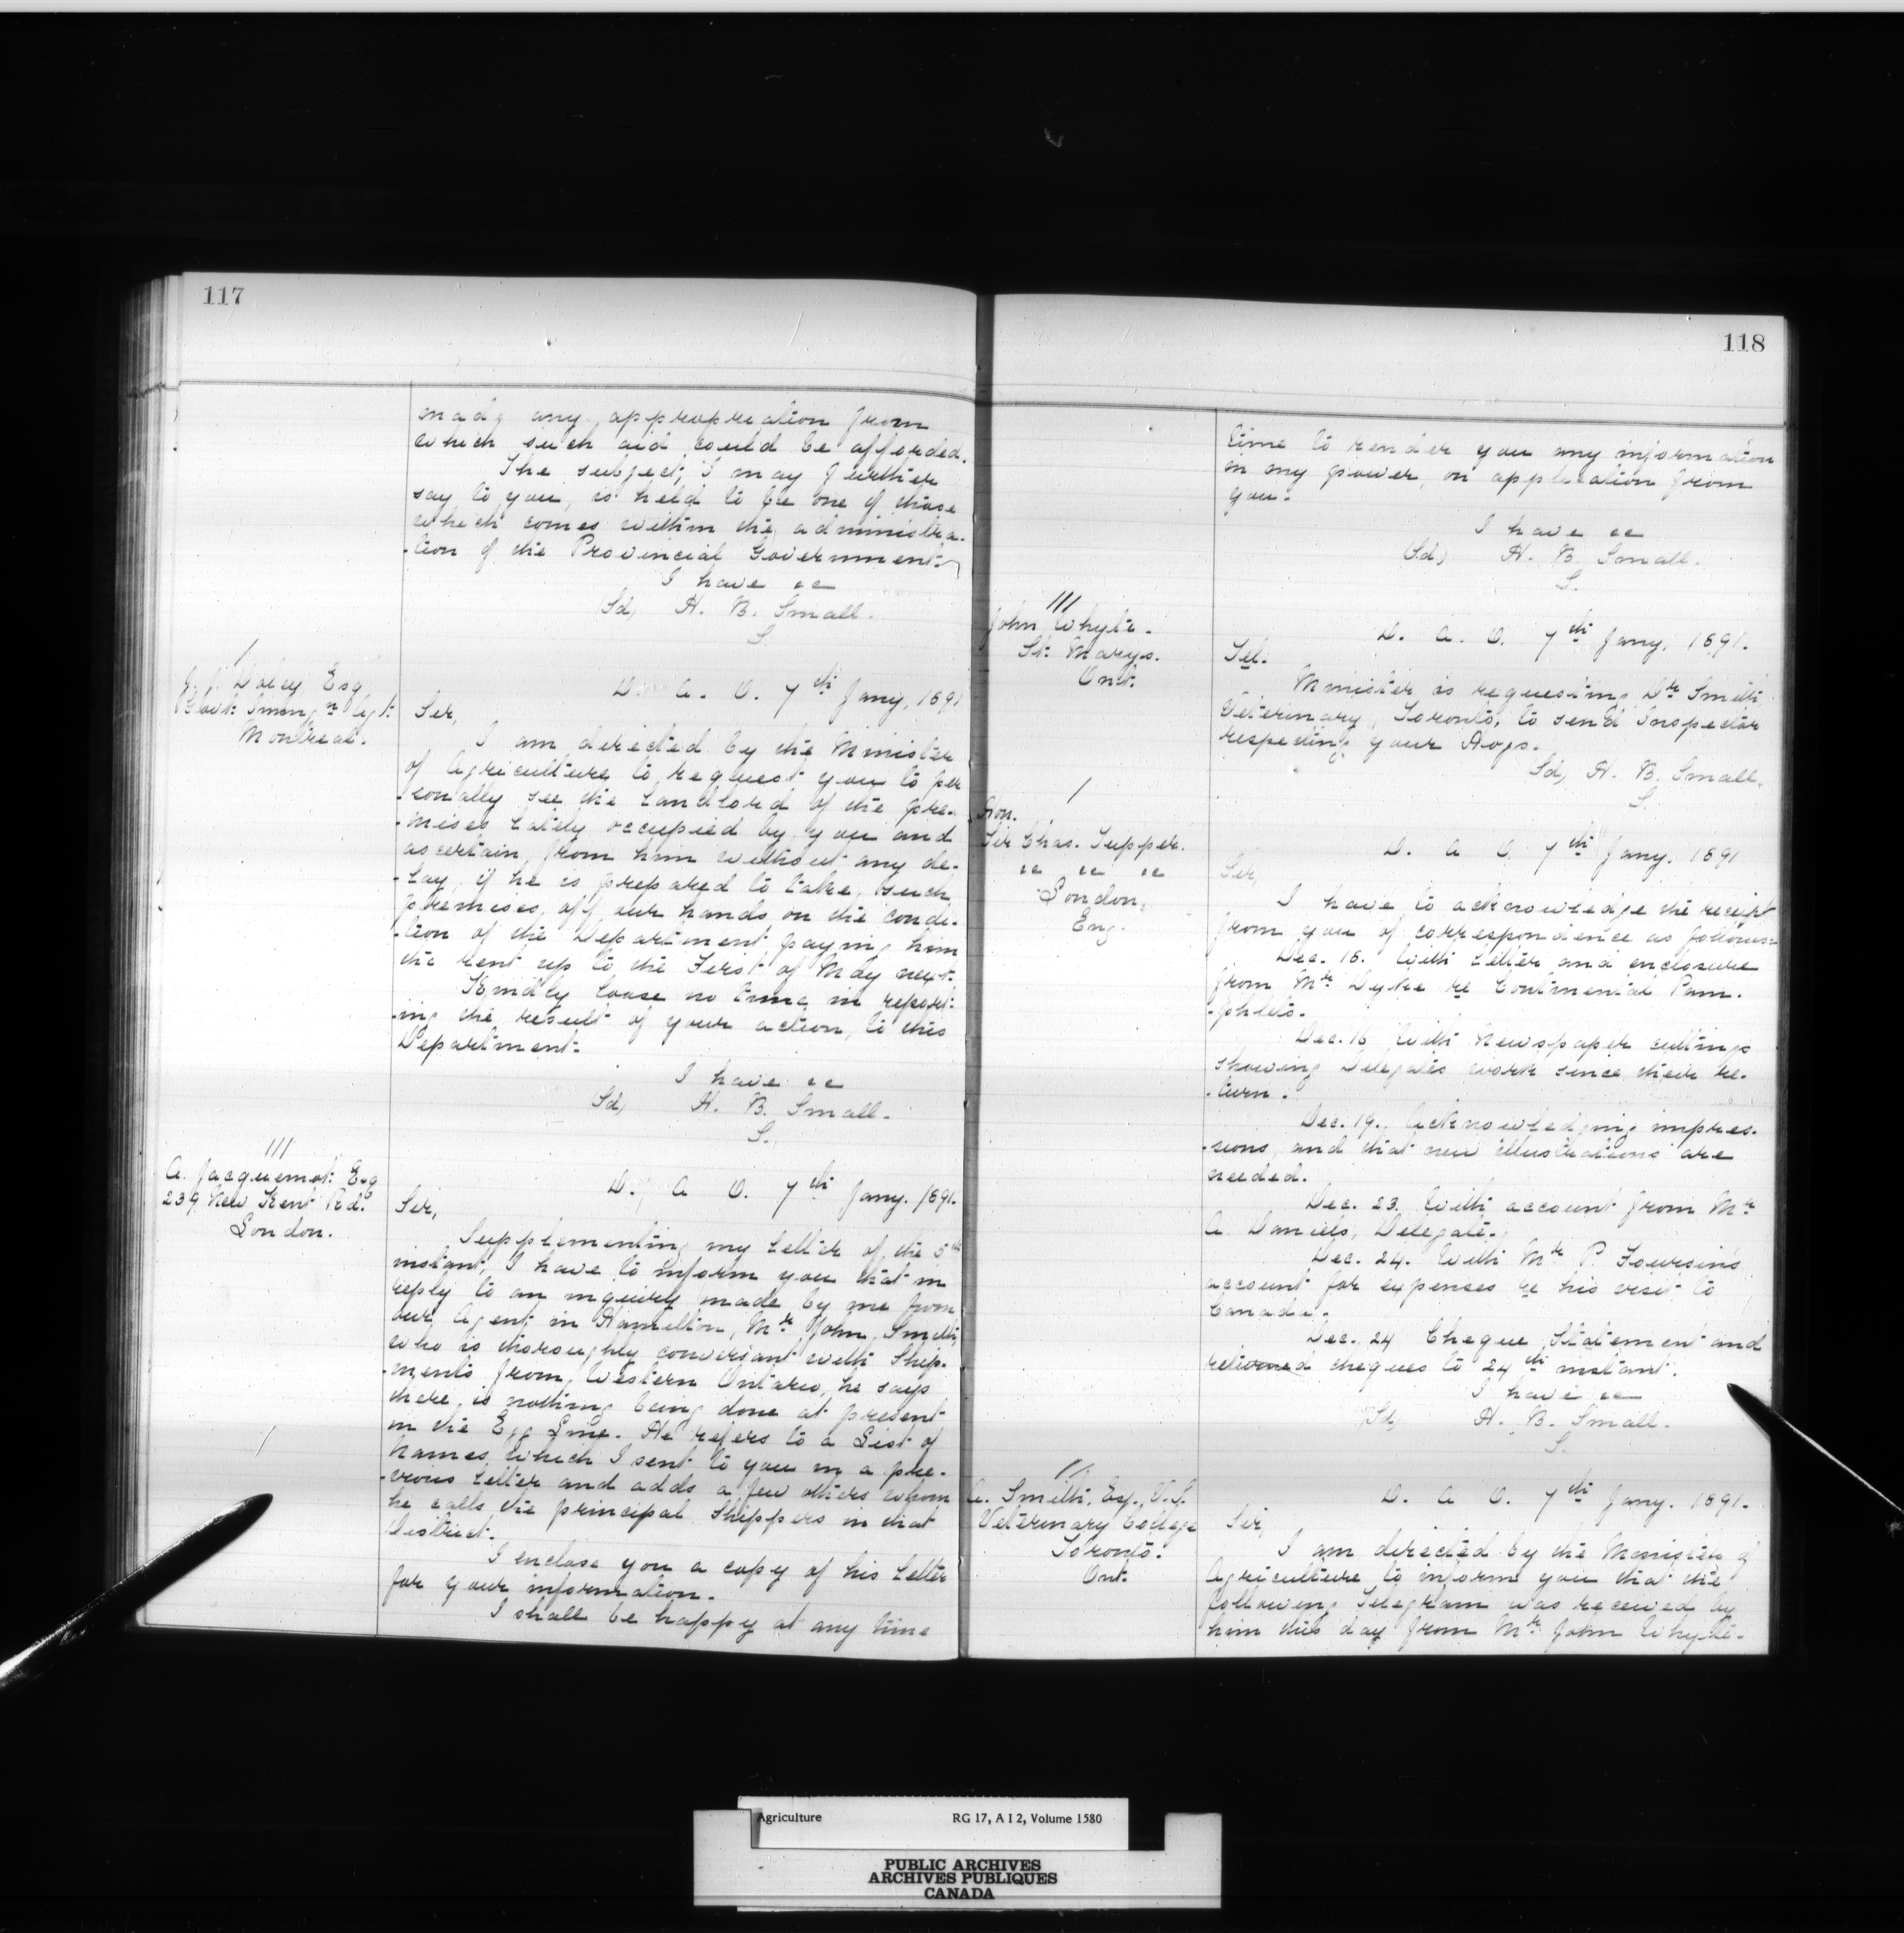 117
made any appropriation from
which such aid could be afforded.
The subject, I may further
say to you, is held to be one of those
which comes within the administra-
-tion of the Provincial Government.
I have &c
Sd, H. B. Small.
S.
J. J. Daley Esq
Govt. Immign Agt.
Montreal.
D. A. O. 7th Jany, 1891
Sir,
I am directed by the Minister
of Agriculture to request you to per
-sonally see the Landlord of the pre-
-mises lately occupied by you and
ascertain from him without any de-
-lay, if he is prepared to take such
premises off our hands on the condi-
-tion of the Department paying him
the rent up to the First of May next.
Kindly loose no time in report-
-ing the result of your action, to this
Department.
I have &c
Sd, H. B. Small.
S.
A. Jacquemot Esq
239 New Kent Rd.
London.
D. A. O. 7th Jany. 1891.
Sir,
Supplementing my letter of the 5th
instant, I have to inform you that in
reply to an inquiry made by me from
our Agent in Hamilton, Mr John Smith
who is thoroughly conversant with Ship-
-ments from Western Ontario, he says
there is nothing being done at present
in the Egg Line. He refers to a List of
names which I sent to you in a pre-
-vious letter and adds a few others whom
he calls the principal Shippers in that
District.
I enclose you a copy of his letter
for your information.
I shall be happy at any time
118
time to render you any information
in my power, on application from
you.
I have &c
Sd, H. B. Small.
S.
John Whyte.
St. Marys.
Ont.
D. A. O. 7th Jany, 1891.
Tel.
Minister is requesting Dr Smith
Veterinary, Toronto, to send Inspector
respecting your Hogs.
Sd, H. B. Small.
S.
Hon.
Sir Chas. Tupper.
&c &c &c
London,
Eng.
D. A. O. 7th Jany. 1891
Sir,
I have to acknowledge the receipt
from you of correspondence as follows:
Dec. 16. With letter and enclosure
from Mr Dyke re Continental Pam-
-phlets.
Dec. 16 With Newspaper cuttings
showing Delegates work since their re-
-turn.
Dec. 19., Acknowledging impres-
-sions, and that new illustrations are
needed.
Dec. 23. With account from Mr
A. Daniels, Delegate.
Dec. 24. With Mr P. Foursin's
account for expenses re his visit to
Canada.
Dec. 24 Cheque Statement and
returned cheques to 24th instant.
I have &c
Sd, H. B. Small.
S.
A. Smith, Esq., V.S.
Veterinary College
Toronto.
Ont.
D. A. O. 7th Jany. 1891.
Sir,
I am directed by the Minister of
Agriculture to inform you that the
following Telegram was received by
him this day from Mr John Whyte-
Agriculture RG 17, A I 2, Volume 1580
PUBLIC ARCHIVES
ARCHIVES PUBLIQUES
CANADA